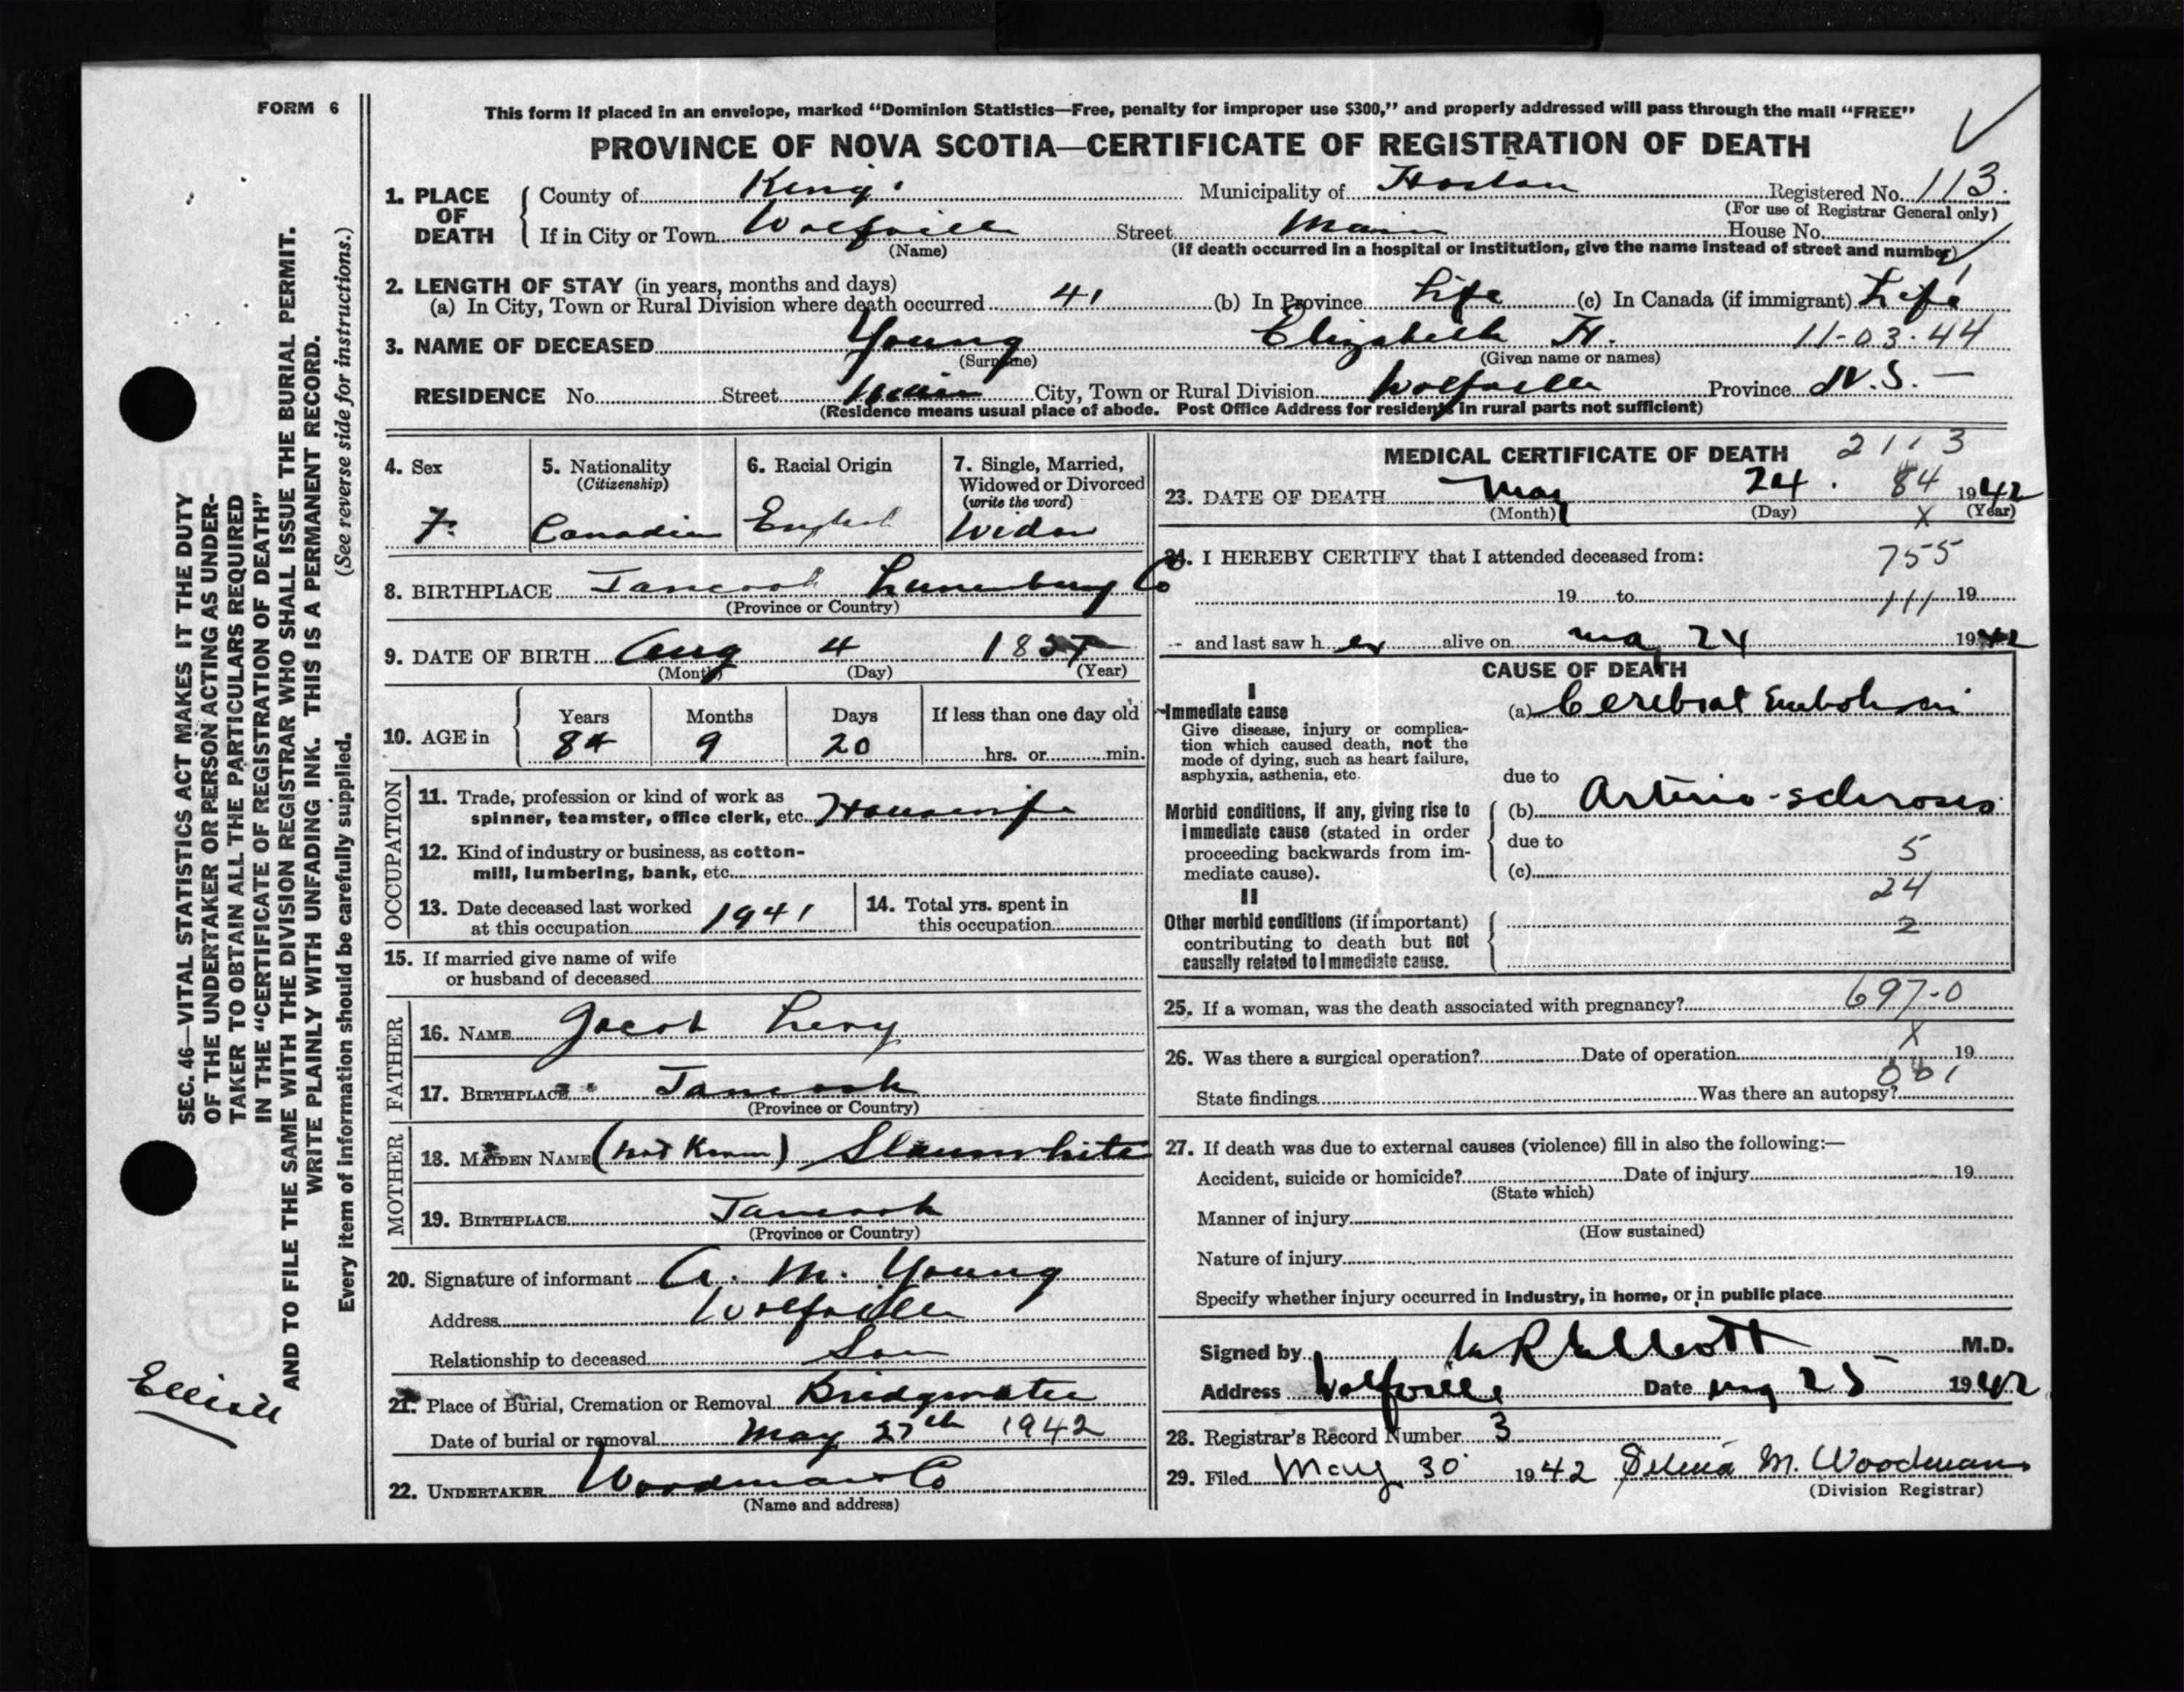 FORM 6
This form if placed in an envelope, marked “Dominion Statistics—Free, penalty for improper use $300,” and properly addressed will pass through the mail “FREE”
PROVINCE OF NOVA SCOTIA—CERTIFICATE OF REGISTRATION OF DEATH
1. PLACE OF DEATH
County of Kings Municipality of Horton Registered No. 113.
(For use of Registrar General only)
If in City or Town Wolfville Street Main House No.
(Name) (If death occurred in a hospital or institution, give the name instead of street and number)
2. LENGTH OF STAY (in years, months and days)
(a) In City, Town or Rural Division where death occurred 41 (b) In Province Life (c) In Canada (if immigrant) Life
3. NAME OF DECEASED Young Elizabeth H. 11-03-44
(Surname) (Given name or names)
RESIDENCE No. Street Main City, Town or Rural Division Wolfville Province N.S.
(Residence means usual place of abode. Post Office Address for residents in rural parts not sufficient)
4. Sex
F.
5. Nationality
(Citizenship)
Canadian
6. Racial Origin
English
7. Single, Married,
Widowed or Divorced
(write the word)
Widow
8. BIRTHPLACE Tancook Lunenburg Co
(Province or Country)
9. DATE OF BIRTH Aug 4 1857
(Month) (Day) (Year)
10. AGE in
Years Months Days If less than one day old
84 9 20 hrs. or min.
OCCUPATION
11. Trade, profession or kind of work as
spinner, teamster, office clerk, etc. Housewife
12. Kind of industry or business, as cotton-
mill, lumbering, bank, etc.
13. Date deceased last worked
at this occupation 1941
14. Total yrs. spent in
this occupation
15. If married give name of wife
or husband of deceased
FATHER
16. NAME Jacob Levy
17. BIRTHPLACE Tancook
(Province or Country)
MOTHER
18. MAIDEN NAME (not Known) Slaunwhite
19. BIRTHPLACE Tancook
(Province or Country)
20. Signature of informant A. M. Young
Address Wolfville
Relationship to deceased Son
21. Place of Burial, Cremation or Removal Bridgwater
Date of burial or removal May 27th 1942
22. UNDERTAKER Woodman & Co
(Name and address)
MEDICAL CERTIFICATE OF DEATH 2113
23. DATE OF DEATH May 24. 84 1942
(Month) (Day) X (Year)
24. I HEREBY CERTIFY that I attended deceased from:
755
19 to 111 19
and last saw her alive on May 24 1942
CAUSE OF DEATH
I
Immediate cause
Give disease, injury or complica-
tion which caused death, not the
mode of dying, such as heart failure,
asphyxia, asthenia, etc.
(a) Cerebral Embolism
due to
Morbid conditions, if any, giving rise to
immediate cause (stated in order
proceeding backwards from im-
mediate cause).
(b) Arterio-sclerosis
due to
5
(c)
24
II
Other morbid conditions (if important)
contributing to death but not
causally related to immediate cause.
2
25. If a woman, was the death associated with pregnancy? 697-0
X
26. Was there a surgical operation? Date of operation 19
001
State findings Was there an autopsy?
27. If death was due to external causes (violence) fill in also the following:—
Accident, suicide or homicide? Date of injury 19
(State which)
Manner of injury
(How sustained)
Nature of injury
Specify whether injury occurred in industry, in home, or in public place
Signed by Elliott M.D.
Address Wolfville Date May 25 1942
28. Registrar's Record Number 3
29. Filed May 30 1942 M. Woodman
(Division Registrar)
SEC. 46—VITAL STATISTICS ACT MAKES IT THE DUTY
OF THE UNDERTAKER OR PERSON ACTING AS UNDER-
TAKER TO OBTAIN ALL THE PARTICULARS REQUIRED
IN THE “CERTIFICATE OF REGISTRATION OF DEATH”
AND TO FILE THE SAME WITH THE DIVISION REGISTRAR WHO SHALL ISSUE THE BURIAL PERMIT.
WRITE PLAINLY WITH UNFADING INK. THIS IS A PERMANENT RECORD.
Every item of information should be carefully supplied. (See reverse side for instructions.)
Elliott